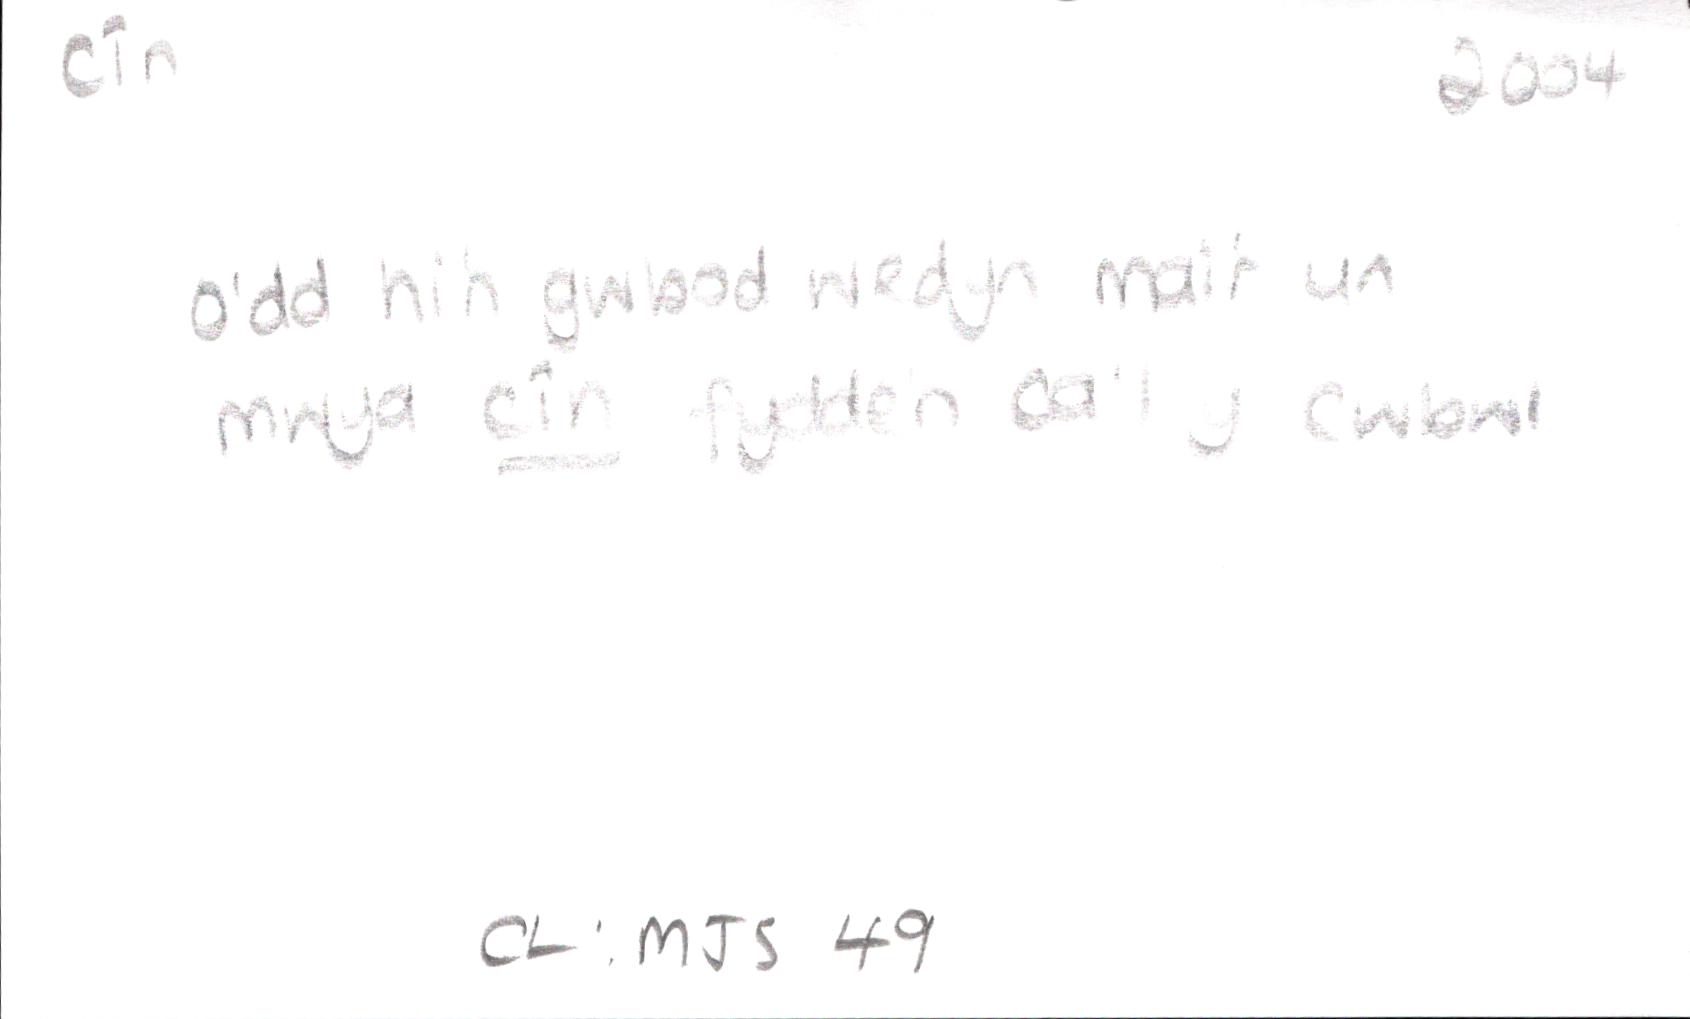 cîn 2004
o'dd nhh gwbod wedyn mair un
mwya cîn fydde'n ca'l y cwbwl
CL: MJS 49